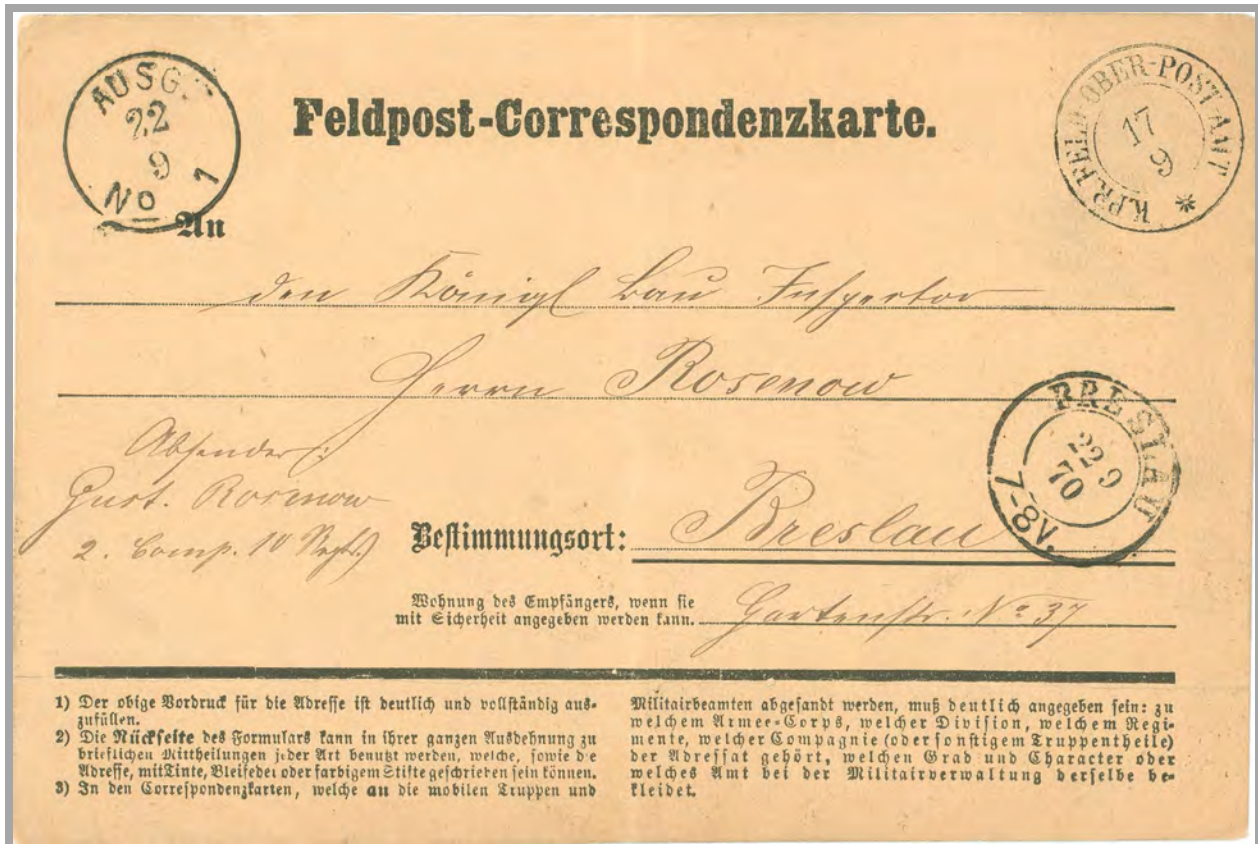 AUSG.
22
9
No 1
Feldpost-Correspondenzkarte.
K.PR.FELD-OBER-POST-AMT
17
9
An
den Königl Bau Inspector
Herrn Rosenow
BRESLAU
22 9
70
7-8V.
Absender:
Gust. Rosenow
2. Comp. 10 Regt.
Bestimmungsort: Breslau
Wohnung des Empfängers, wenn sie
mit Sicherheit angegeben werden kann. Gartenstr. No 37
1) Der obige Vordruck für die Adresse ist deutlich und vollständig aus-
zufüllen.
2) Die Rückseite des Formulars kann in ihrer ganzen Ausdehnung zu
brieflichen Mittheilungen jeder Art benutzt werden, welche, sowie die
Adresse, mit Tinte, Bleifeder oder farbigem Stifte geschrieben sein können.
3) In den Correspondenzkarten, welche an die mobilen Truppen und
Militairbeamten abgesandt werden, muß deutlich angegeben sein: zu
welchem Armee-Corps, welcher Division, welchem Regi-
mente, welcher Compagnie (oder sonstigem Truppentheile)
der Adressat gehört, welchen Grad und Character oder
welches Amt bei der Militairverwaltung derselbe be-
kleidet.